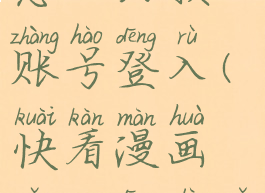 zhàng hào dēng rù
账号登入(
kuài kàn màn huà
快看漫画